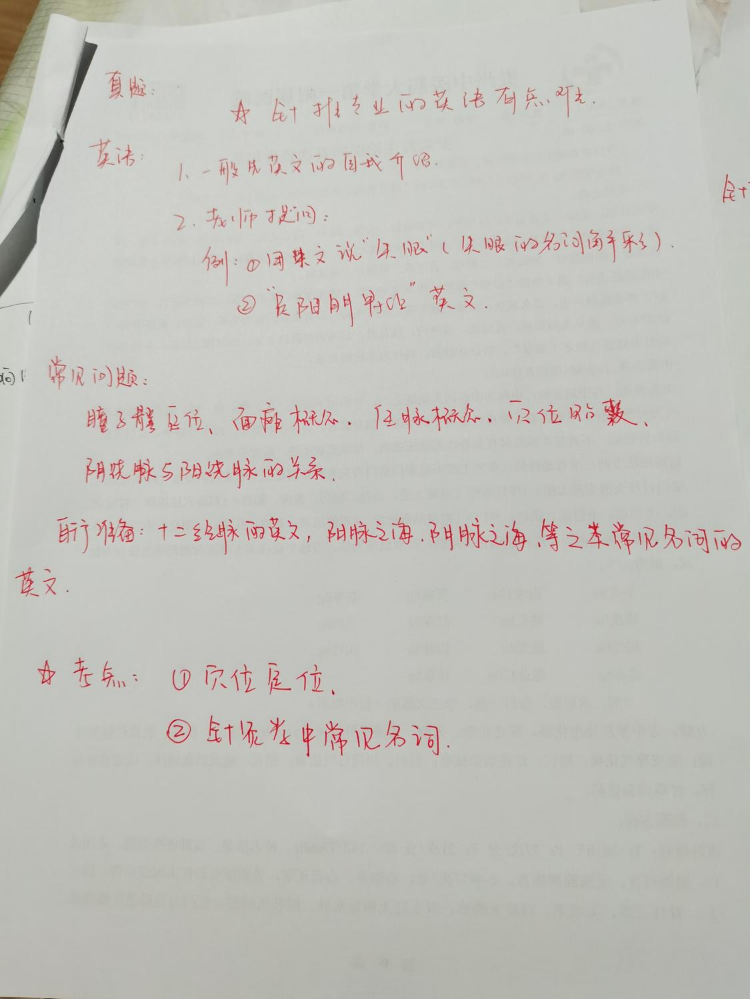 真题:
☆ 针推专业的英语有点难.
英语:
1. 一般先英文的自我介绍.
2. 老师提问:
例: ①用英文说"失眠"(失眠的名词
②"足阳明胃经"英文.
常见问题:
瞳子髎定位、面瘫概念. 任脉概念. 穴位
阴跷脉与阳跷脉的关系.
自行准备: 十二经脉的英文, 阳脉之海.阴脉之海.等之类常见名词的
英文.
☆ 考点: ①穴位定位.
②针灸学中常见名词.